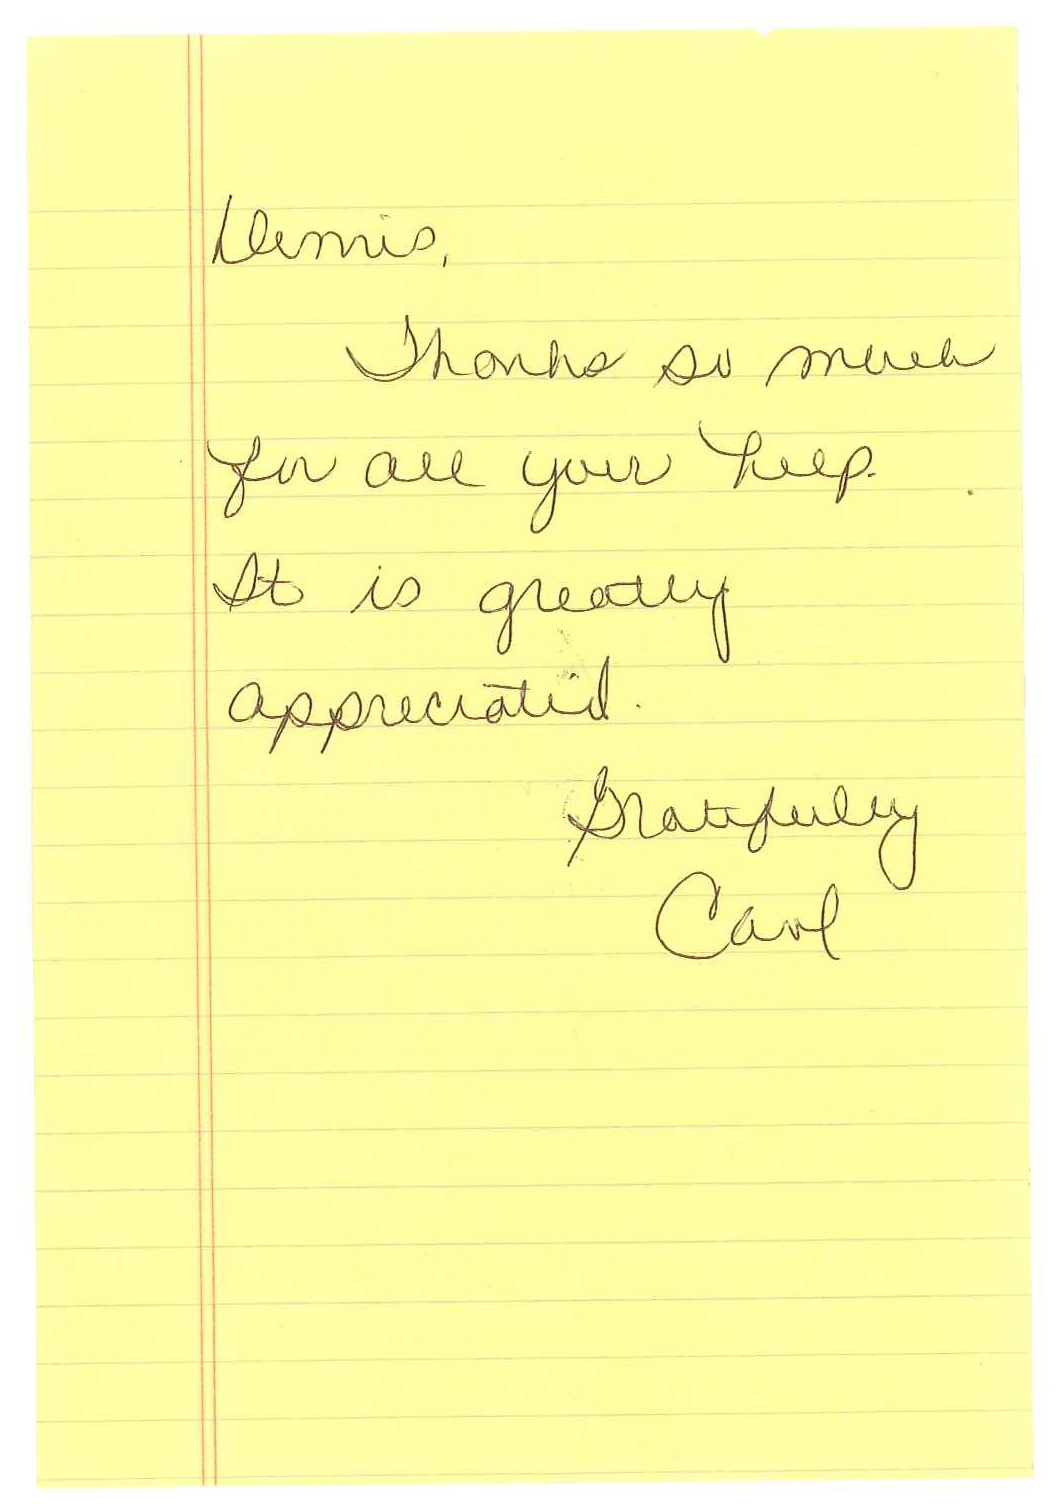 Dennis,
Thanks so much
for all your help.
It is greatly
appreciated.
Gratefully
Carol